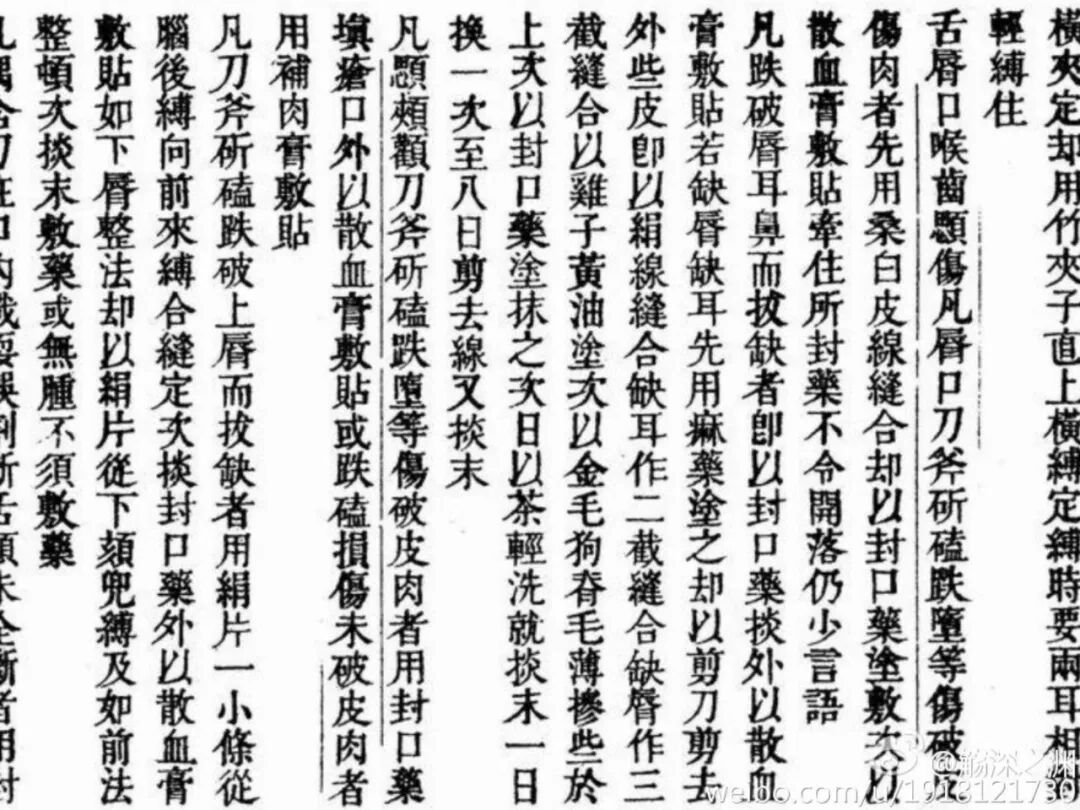 橫夾定却用竹夾子直上橫縛定縛時要兩耳相
輕縛住
舌唇口喉齒顋傷凡唇口刀斧斫磕跌墮等傷破
傷肉者先用桑白皮線縫合却以封口藥塗敷次以
散血膏敷貼牽住所封藥不令開落仍少言語
凡跌破唇耳鼻而拔缺者卽以封口藥掞外以散血
膏敷貼若缺唇缺耳先用麻藥塗之却以剪刀剪去
外些皮卽以絹線縫合缺耳作二截縫合缺唇作三
截縫合以雞子黃油塗次以金毛狗脊毛薄摻些於
上次以封口藥塗抹之次日以茶輕洗就掞末一日
換一次至八日剪去線又掞末
凡顋頰顴刀斧斫磕跌墮等傷破皮肉者用封口藥
塡瘡口外以散血膏敷貼或跌磕損傷未破皮肉者
用補肉膏敷貼
凡刀斧斫磕跌破上唇而拔缺者用絹片一小條從
腦後縛向前來縛合縫定次掞封口藥外以散血膏
敷貼如下唇整法却以絹片從下頦兜縛及如前法
整頓次掞末敷藥或無腫不須敷藥
凡偶含刀在口內
舌頭未全斷者用封
@觞深之渊
weibo.com/u/1913121730